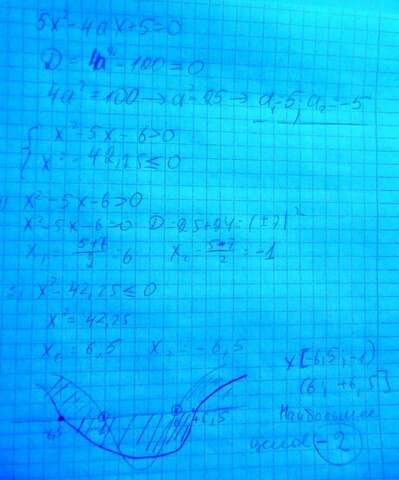 5x²-4ax+5=0
D = 4a²-100=0
4a²=100→a²=25→ a₁=5; a₂=-5
{ x²-5x-6>0
x²-42,25≤0
1) x²-5x-6>0
x²-5x-6=0 D=25+24=(±7)²
x₁=(5+7)/2=6 x₂=(5-7)/2=-1
2) x²-42,25≤0
x²=42,25
x₁=6,5 x₂=-6,5
x[-6,5;-1)
(6; +6,5]
Наибольшее
целое -2
-6,5
+6,5